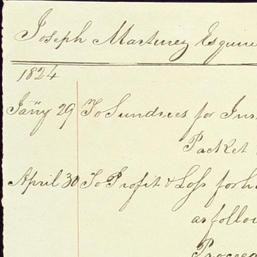 Joseph Martinez Esquire
1824
Jany 29 To Sundries for Ins
Packet
April 30 To Profit & Loss for h
as follow
Procee